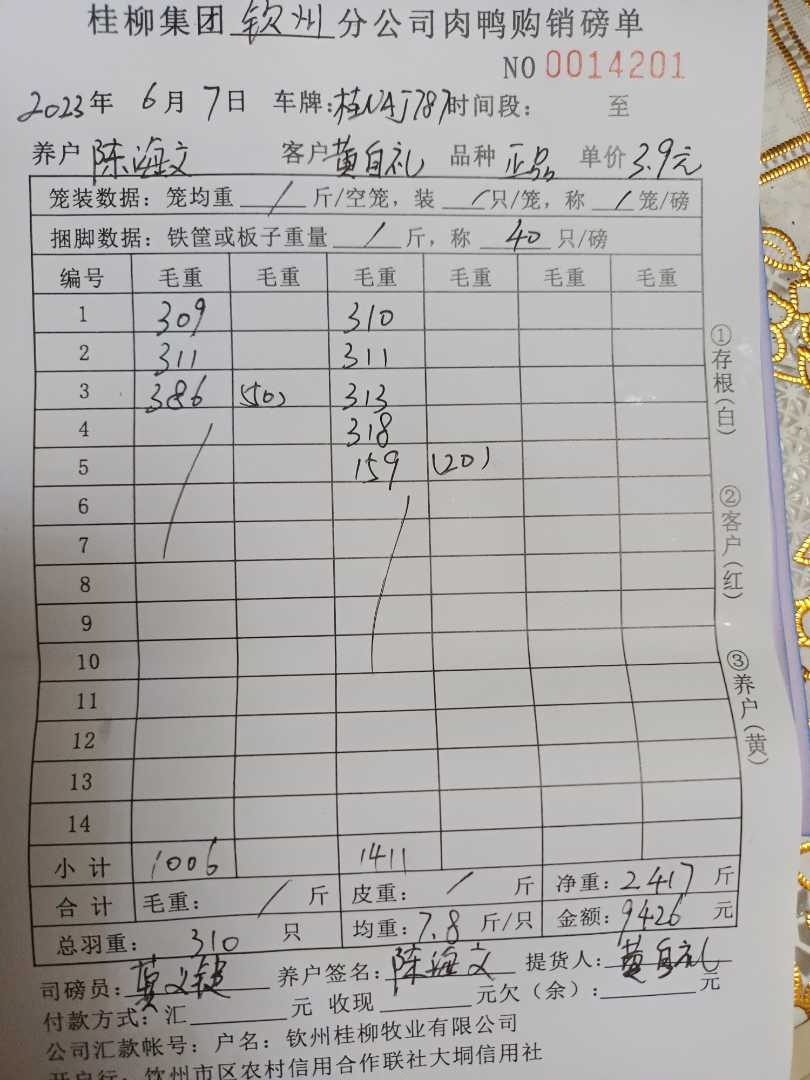 桂柳集团 钦州 分公司肉鸭购销磅单
NO 0014201
2023年 6月 7日 车牌:桂NAJ787 时间段: 至
养户 陈海文 客户 黄自礼 品种 正品 单价 3.9元
笼装数据:笼均重 / 斤/空笼,装 / 只/笼,称 / 笼/磅
捆脚数据:铁筐或板子重量 / 斤,称 40 只/磅
编号 毛重 毛重 毛重 毛重 毛重 毛重
1 309 310
2 311 311
3 386 (50) 313
4 318
5 159 (20)
6
7
8
9
10
11
12
13
14
小计 1006 1411
合计 毛重: / 斤 皮重: / 斤 净重:2417 斤
总羽重: 310 只 均重:7.8 斤/只 金额:9426 元
司磅员: 养户签名:陈海文 提货人:黄自礼
付款方式:汇 元 收现 元欠(余): 元
公司汇款帐号:户名:钦州桂柳牧业有限公司
开户行:钦州市区农村信用合作联社大垌信用社
①存根(白)
②客户(红)
③养户(黄)